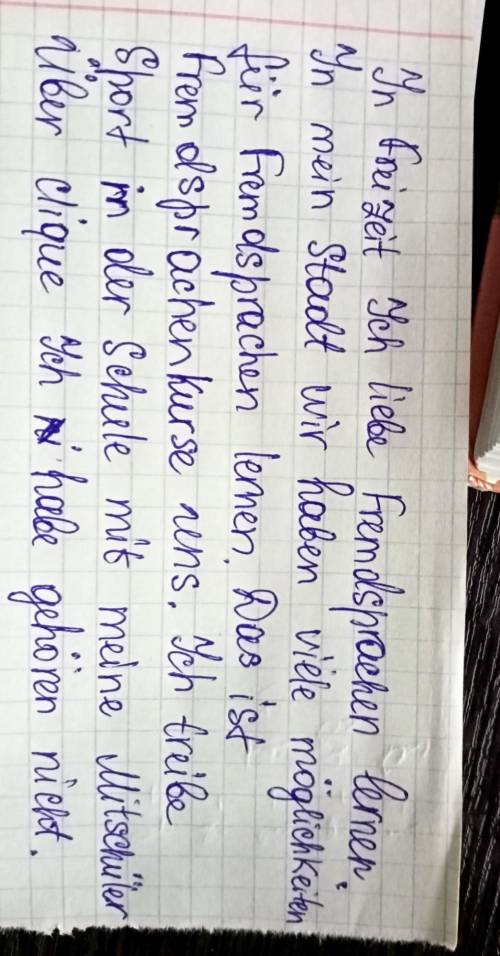 In Freizeit Ich liebe Fremdsprachen lernen.
In mein Stadt wir haben viele möglichkeiten
für Fremdsprachen lernen. Das ist
Fremdsprachenkurse uns. Ich treibe
Sport in der Schule mit meine Mitschüler
Über clique Ich habe gehören nicht.